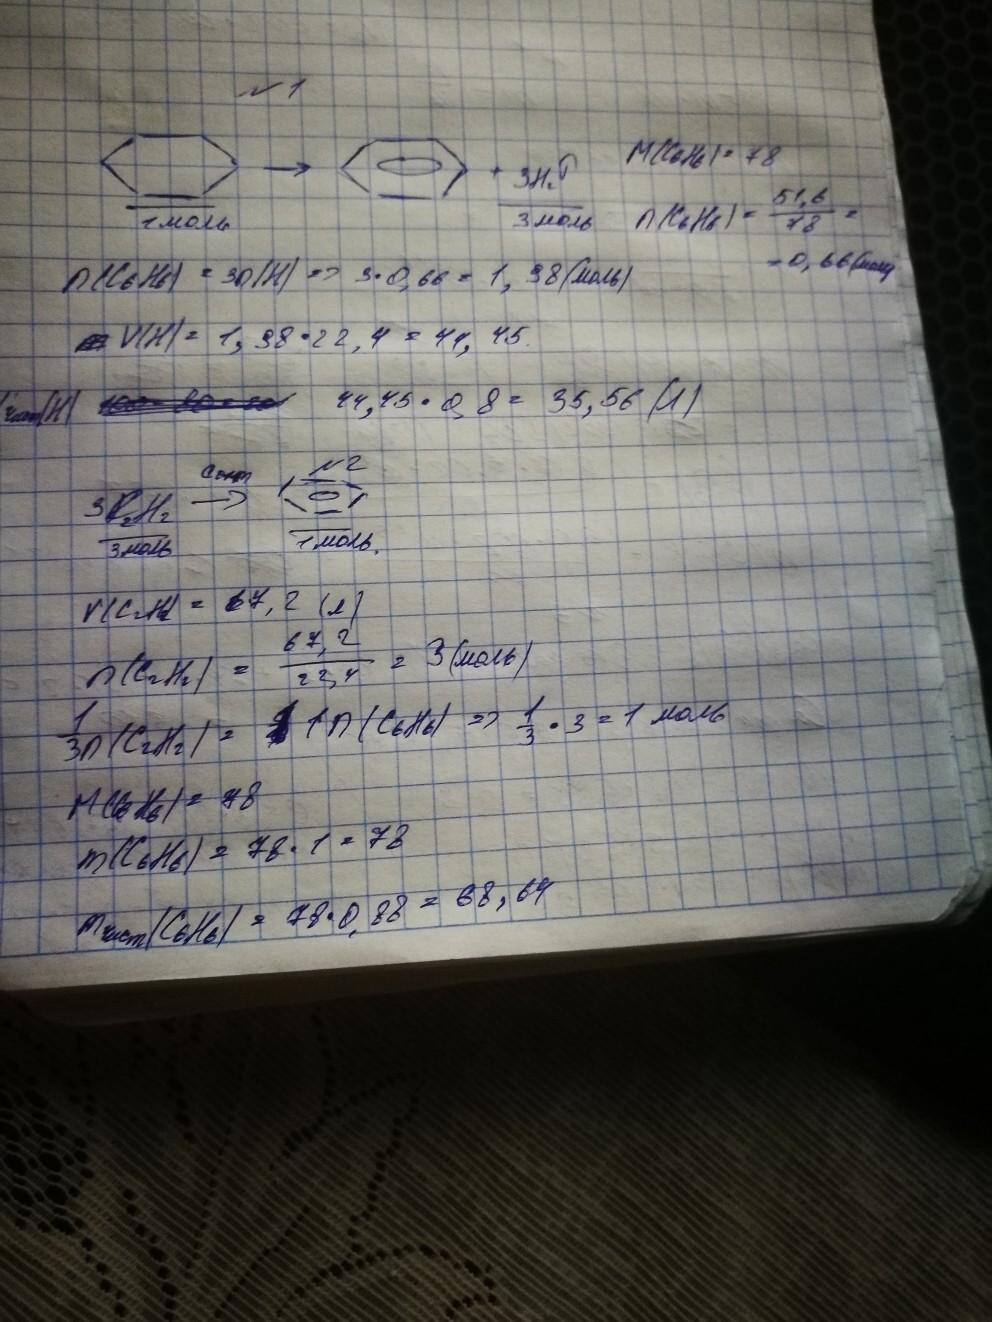 №1
→ + 3H₂↑ M(C₆H₆) = 78
1 моль 3 моль n(C₆H₆) = 51,6 / 78 =
= 0,66(моль)
n(C₆H₆) = 3n(H) => 3·0,66 = 1,98(моль)
V(H) = 1,98·22,4 = 44,45.
чист(H) 44,45·0,8 = 35,56 (л)
№2
3C₂H₂ Cакт →
3моль 1моль.
V(C₂H₂ = 67,2 (л)
n(C₂H₂) = 67,2 / 22,4 = 3(моль)
1/3n(C₂H₂) = 1n(C₆H₆) => 1/3·3 = 1 моль
M(C₆H₆) = 78
m(C₆H₆) = 78·1 = 78
mчист(C₆H₆) = 78·0,88 = 68,64